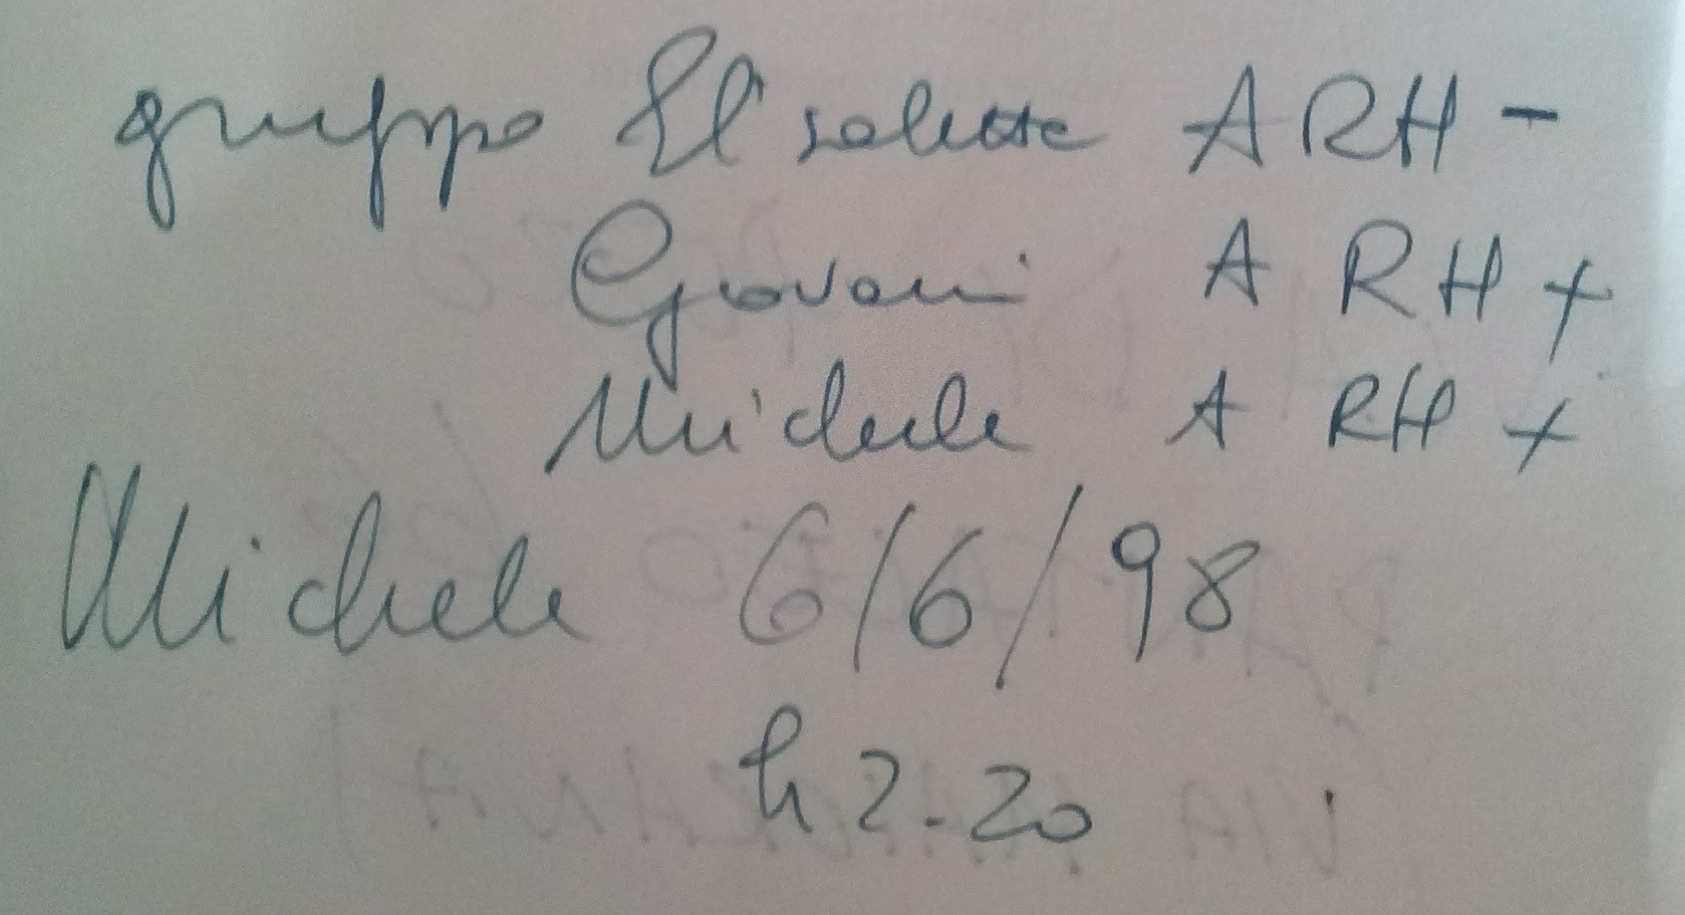 gruppo Elisabetta A RH -
Giovanni A RH +
Michele A RH +
Michele 6/6/98
h 2.20